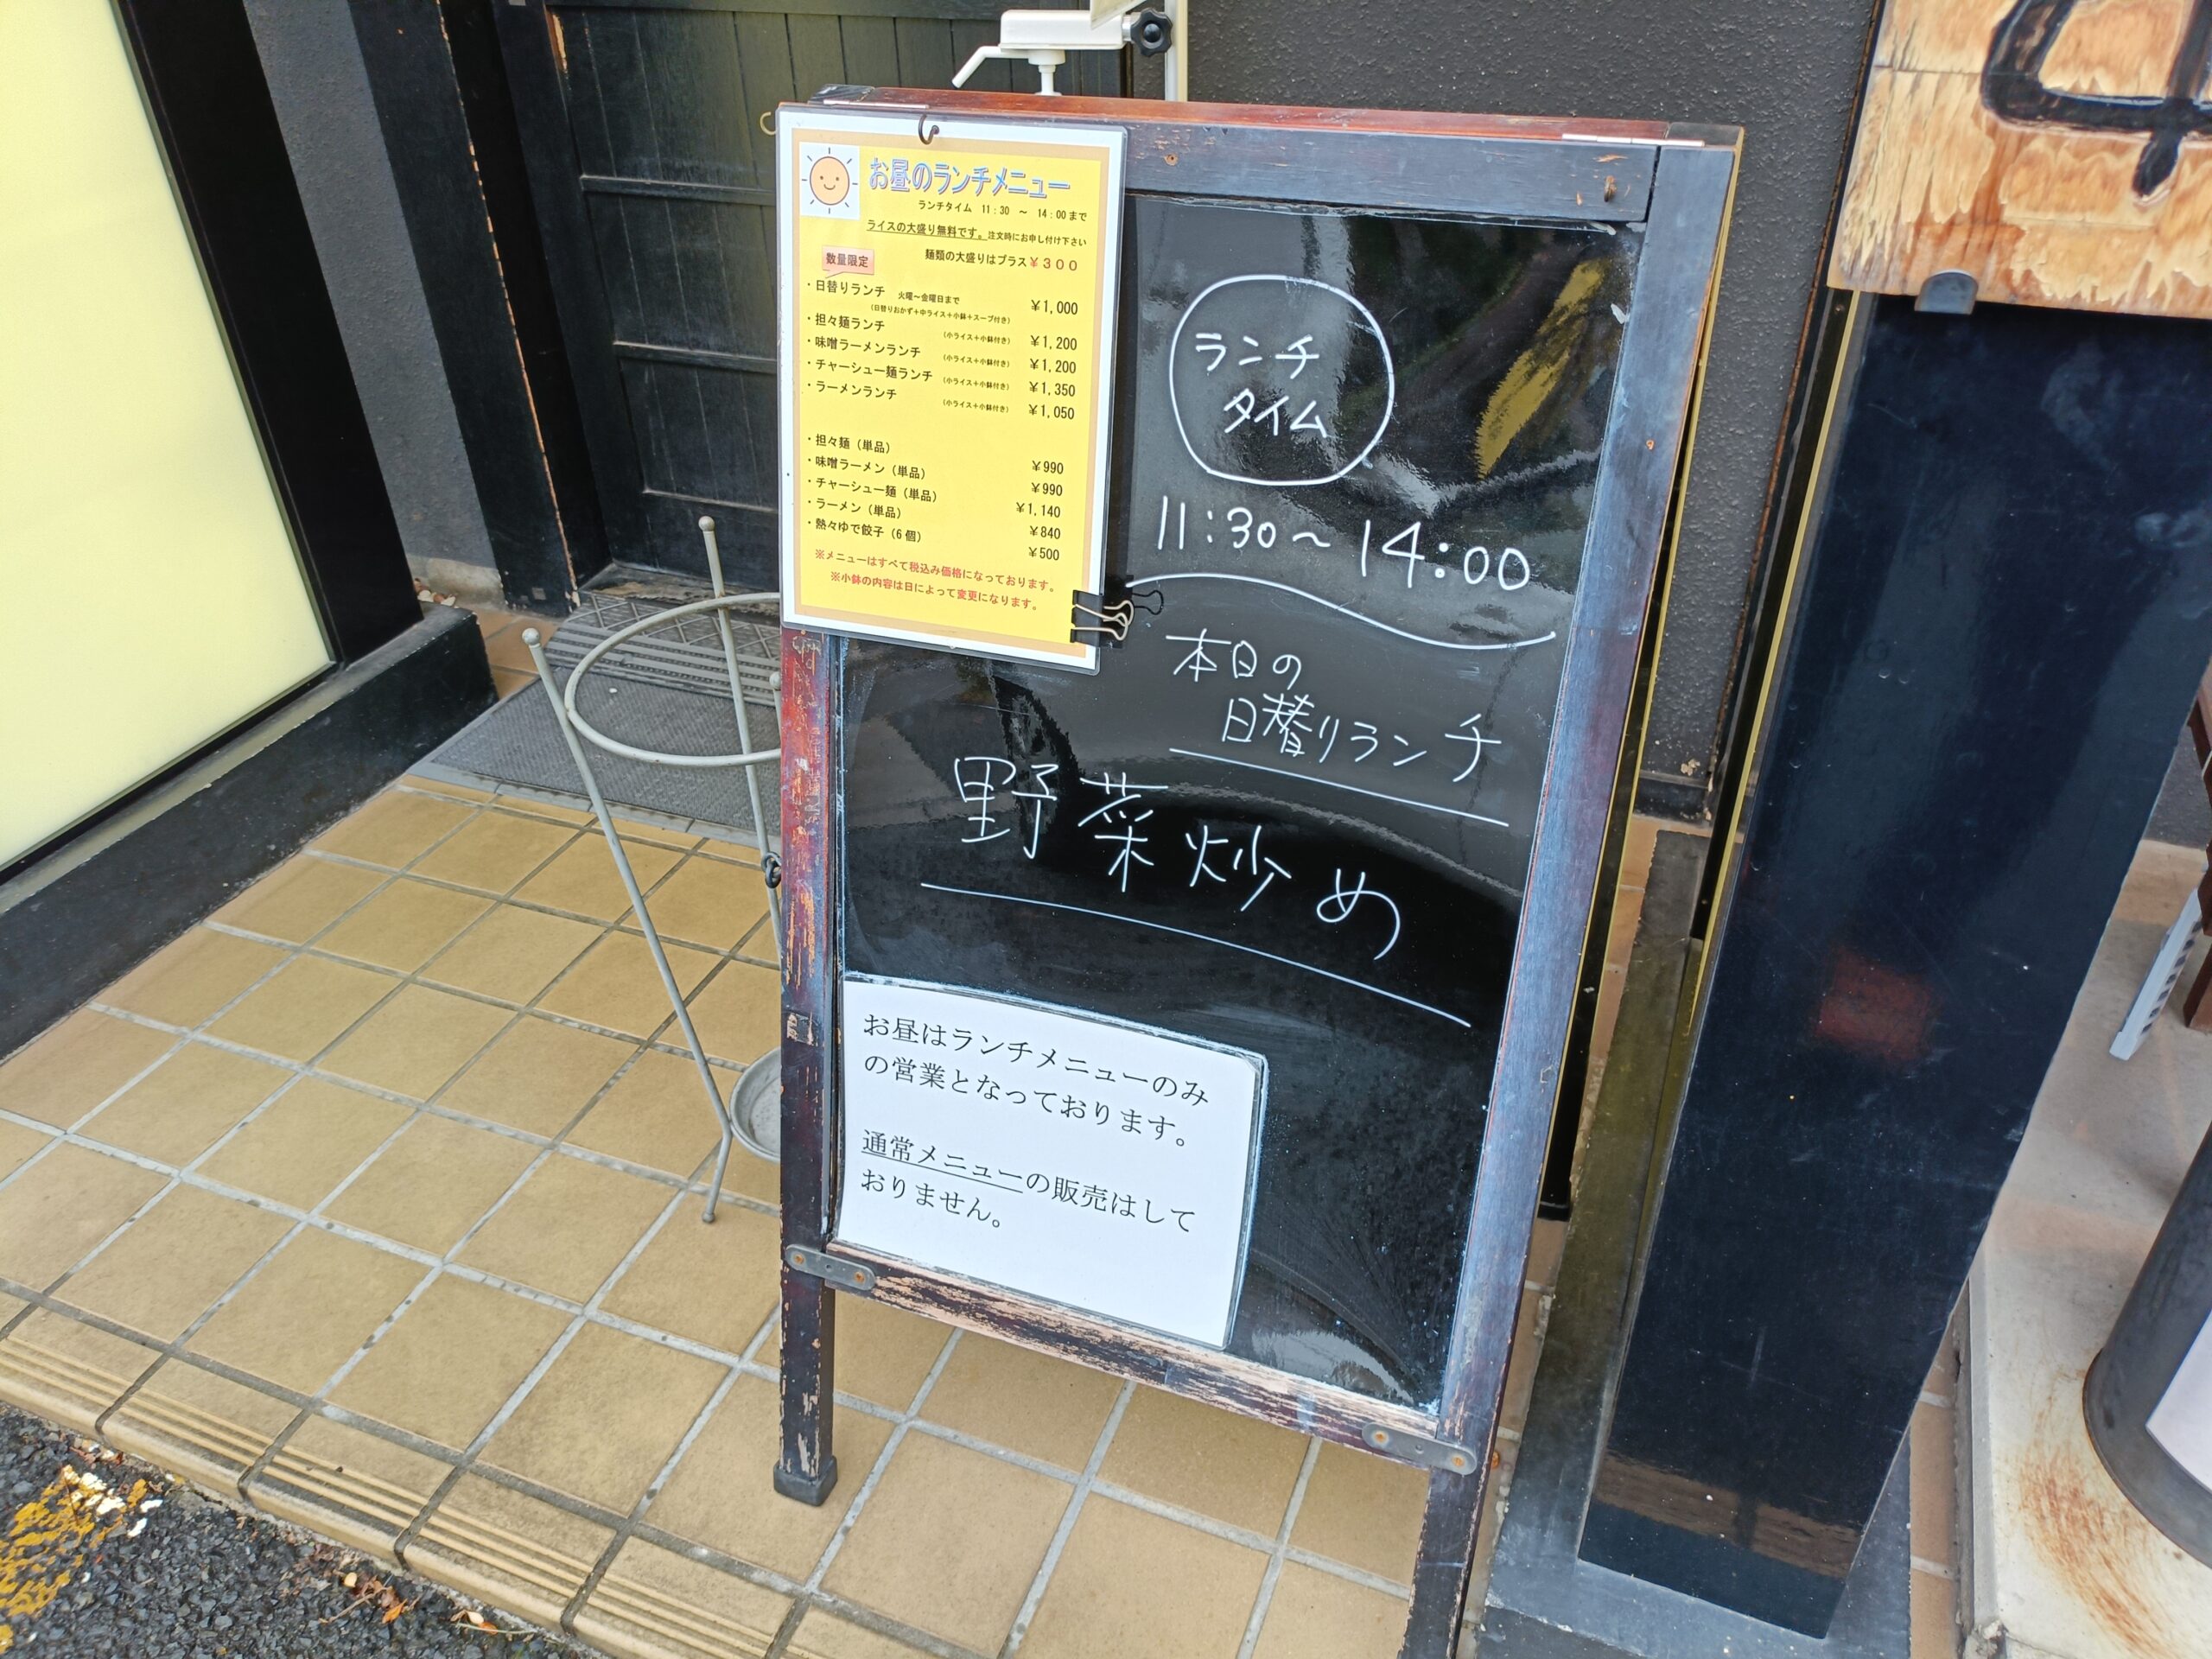 お昼のランチメニュー
ランチタイム 11：30 ～ 14：00まで
ライスの大盛り無料です。注文時にお申し付け下さい
麺類の大盛りはプラス￥３００
数量限定
・日替りランチ 火曜～金曜日まで ￥1,000
（日替りおかず＋中ライス＋小鉢＋スープ付き）
・担々麺ランチ （小ライス＋小鉢付き） ￥1,200
・味噌ラーメンランチ （小ライス＋小鉢付き） ￥1,200
・チャーシュー麺ランチ （小ライス＋小鉢付き） ￥1,350
・ラーメンランチ （小ライス＋小鉢付き） ￥1,050
・担々麺（単品） ￥990
・味噌ラーメン（単品） ￥990
・チャーシュー麺（単品） ￥1,140
・ラーメン（単品） ￥840
・熱々ゆで餃子（6個） ￥500
※メニューはすべて税込み価格になっております。
※小鉢の内容は日によって変更になります。
ランチ
タイム
11:30～14:00
本日の
日替りランチ
野菜炒め
お昼はランチメニューのみ
の営業となっております。
通常メニューの販売はして
おりません。